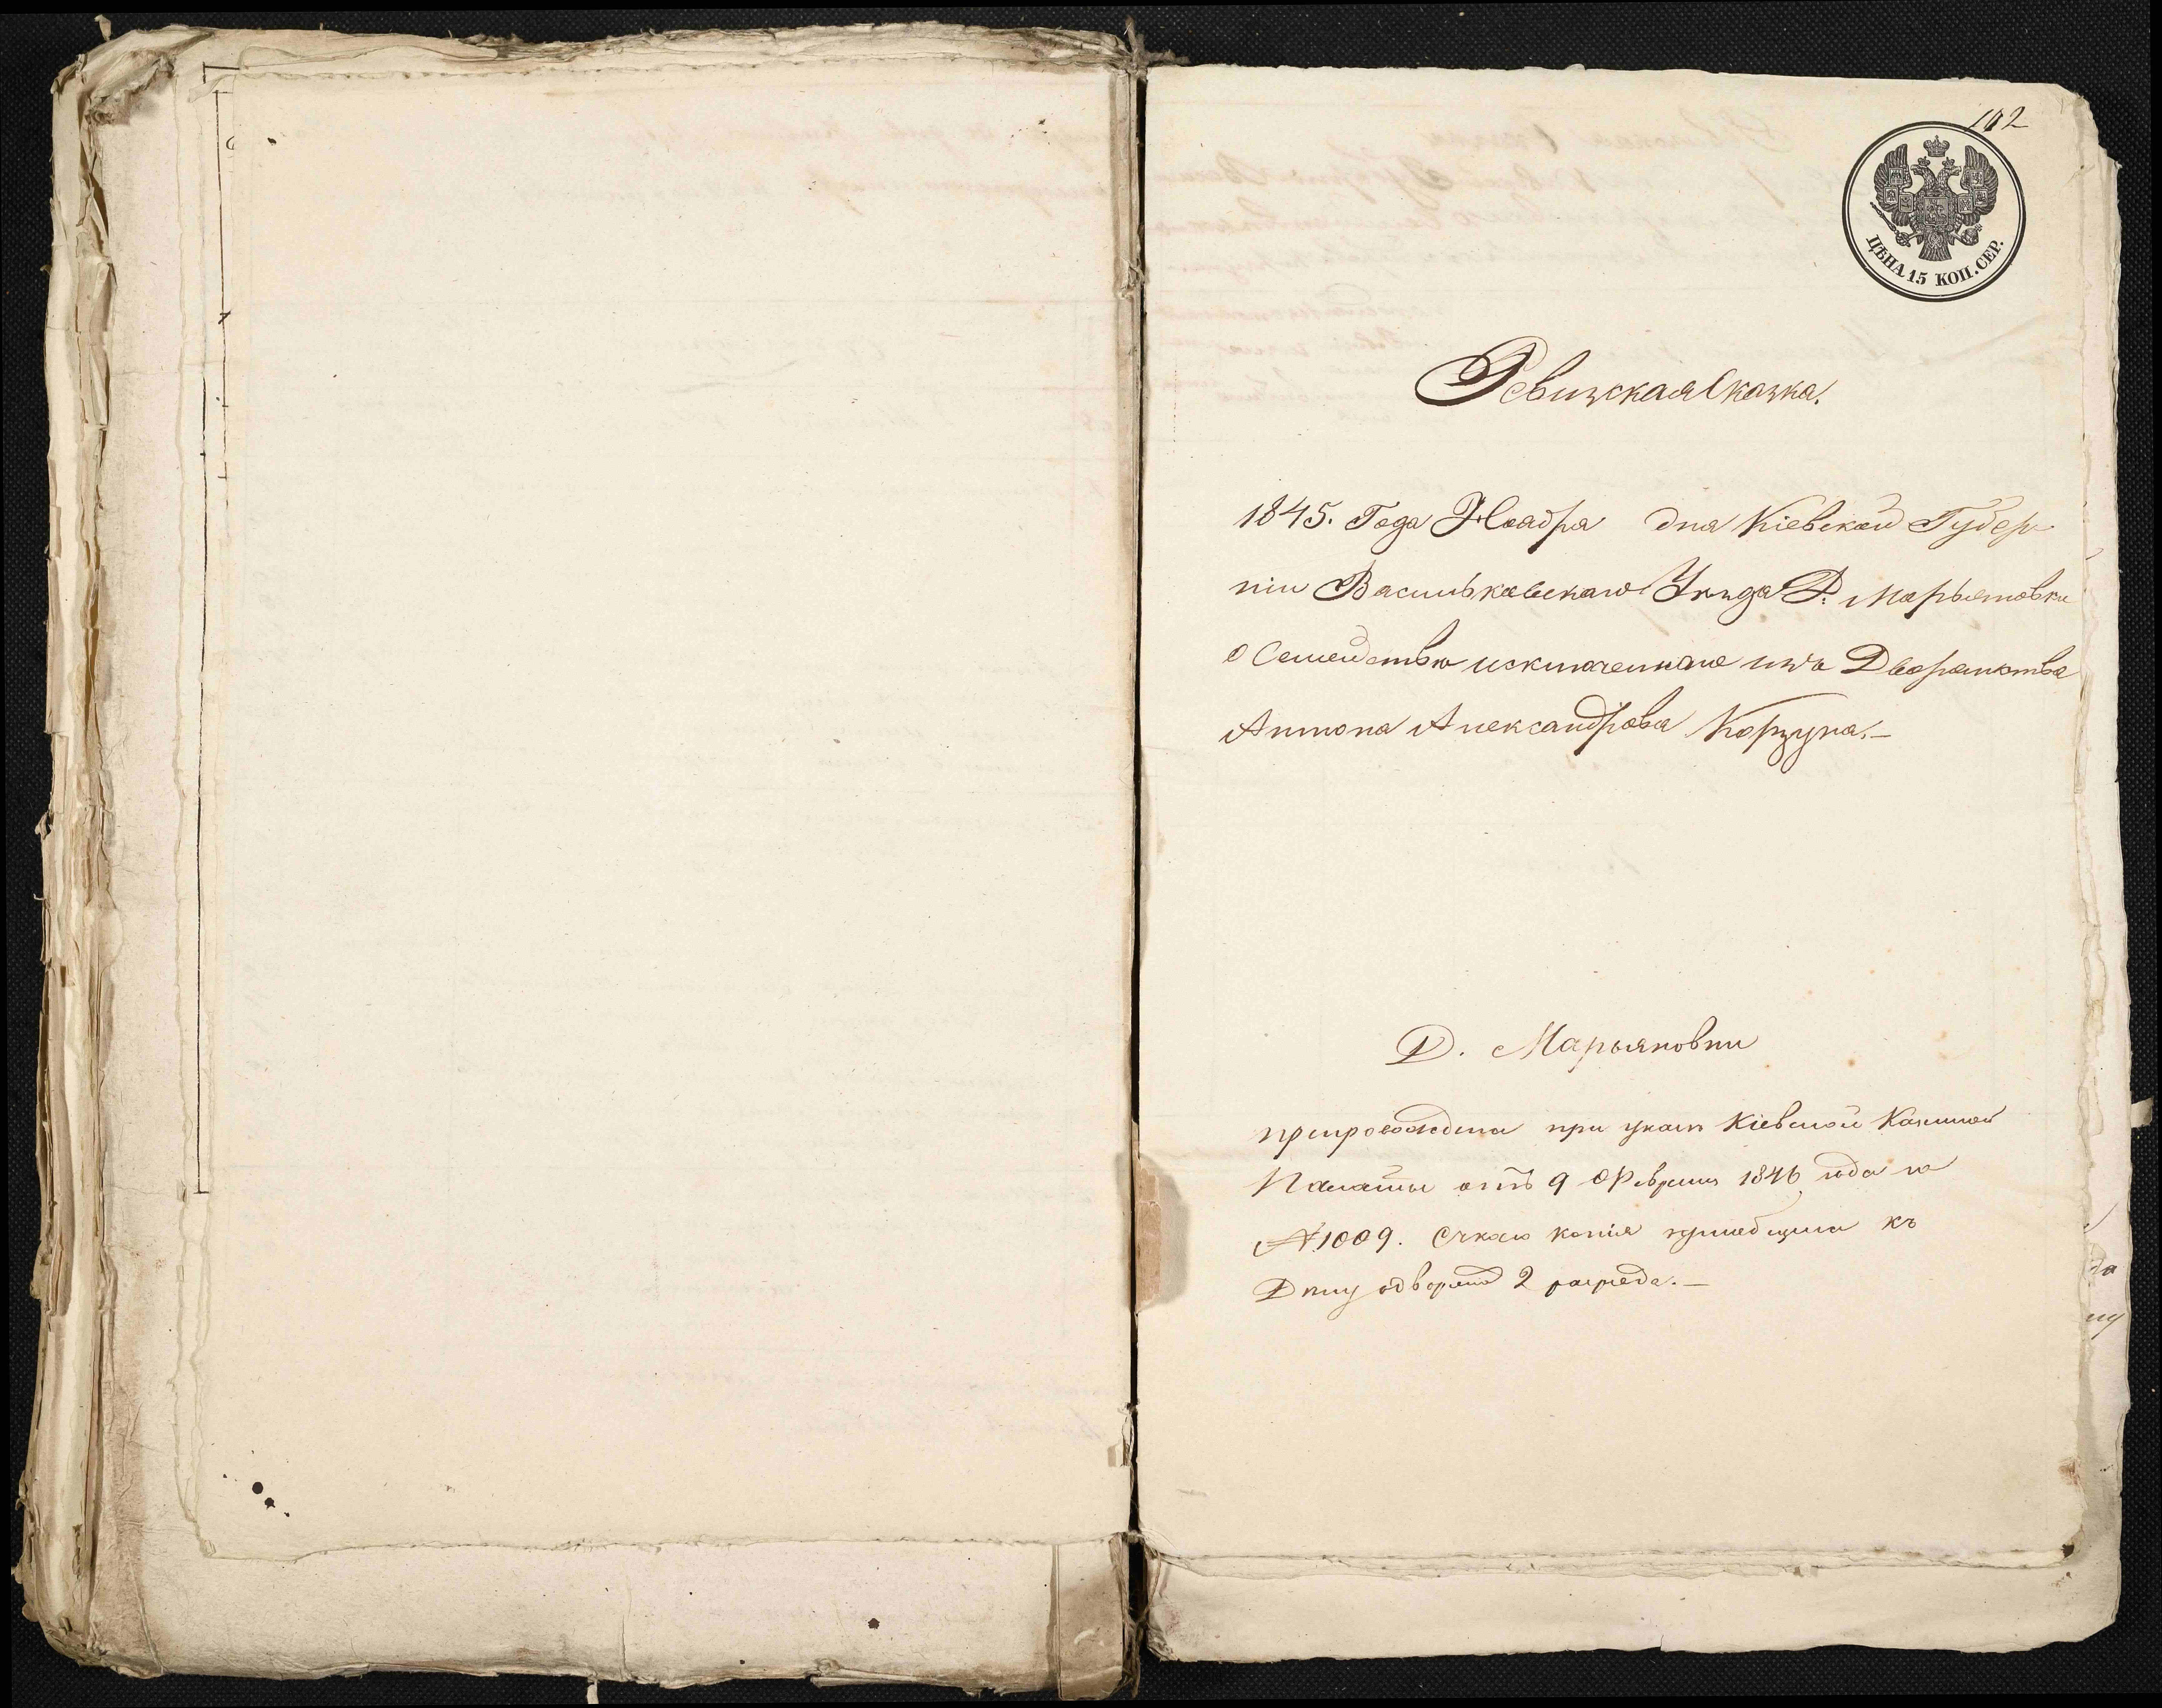 102
ЦѢНА 15 КОП. СЕР.
Ревизская Сказка.
1845. Года Ноября дня Кіевской Губер
ніи Васильковскаго Уѣзда Д: Марьяновки
о Семействѣ исключеннаго изъ Дворянства
Антона Александрова Корзуна.—
Д. Марьяновки
препровождена при указѣ Кіевской Казенной
Палаты отъ 9 Февраля 1846 года за
№ 1009. копія къ
2 разряда.—